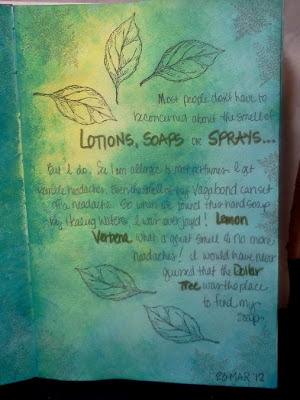 Most people don't have to
be concerned about the smell of
LOTIONS, SOAPS OR SPRAYS...
But I do. See I am allergic to most perfumes. I get
headaches. Even the smell of Vagabond can set
off a headache. So when we found this hand soap
by Healing Waters, I was over joyed! Lemon
Verbena what a great smell & no more
headaches! I would have never
guessed that the Dollar
Tree was the place
to find my
soap.
20 MAR '12